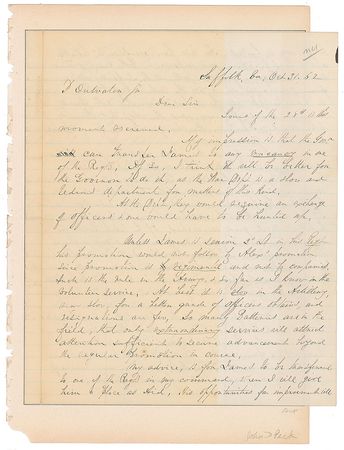 Suffolk, Va, Oct. 31. 62
Dear Sir
Yours of the 28th is this
moment received.
My impression is that the Gov-
can transfer James to any vacancy in one
of the Regts. If so, I think it will be better for
the Governor to do it as the War Dept is a slow and
tedious department for matters of this kind.
would require an exchange
of officers & one would have to be hunted up.
Unless James is senior 2d Lt in his Regt
his promotion would not follow if
since promotion is regimental and not by companies.
Such is the rule in the Army, & so far as is known in the
volunteer service. At best it is slow in the Artillery,
very slow, for a better grade of officers obtains, and
resignations are few. So many Batteries are in the
field, that only extraordinary services will attract
attention sufficient to secure advancement beyond
the regular promotion in course.
My advice, is for James to be transferred
to one of the Regts in my command, & then I will give
him a place as Aid, His opportunities for improvement will
John J Peck